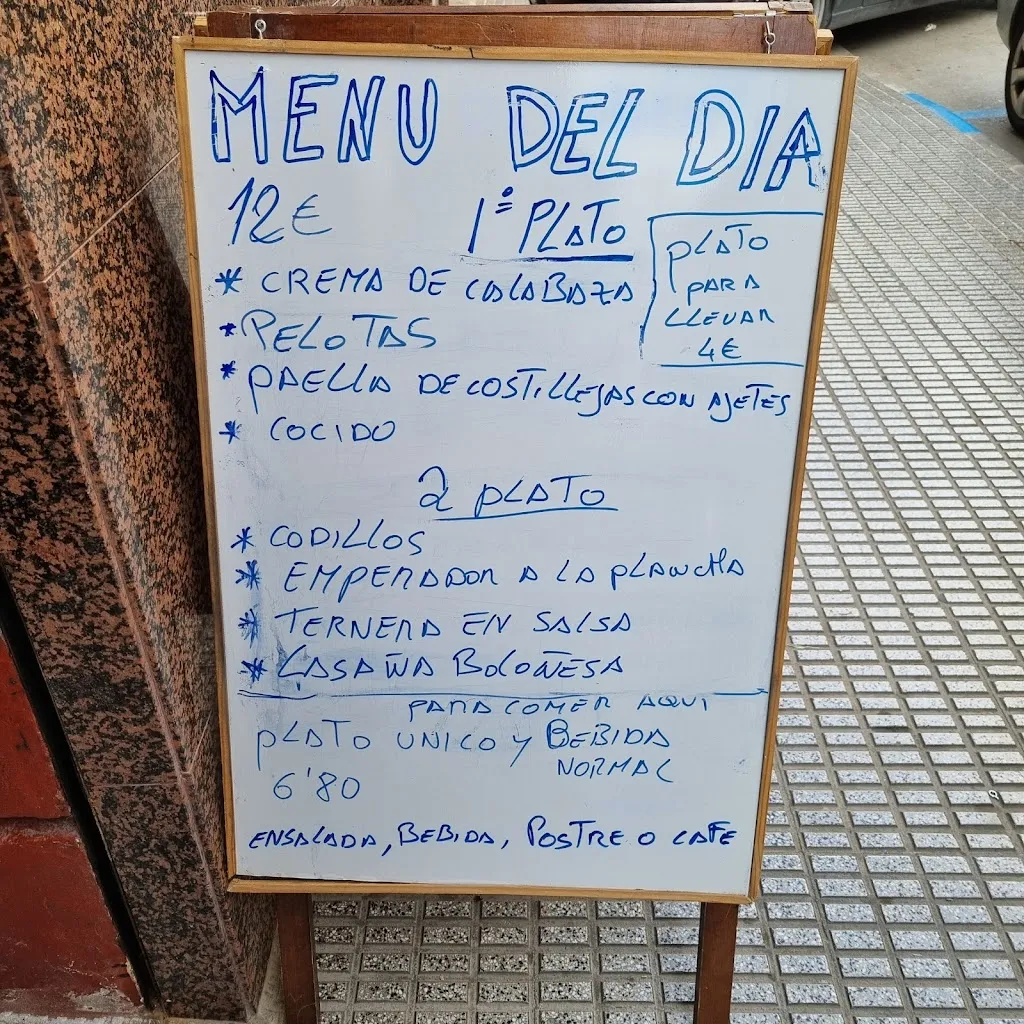 MENU DEL DIA
12€
1º PLATO
* CREMA DE CALABAZA
* PELOTAS
* PAELLA DE COSTILLEJAS CON AJETES
* COCIDO
PLATO
PARA
LLEVAR
4€
2 PLATO
* CODILLOS
* EMPERADOR A LA PLANCHA
* TERNERA EN SALSA
* LASAÑA BOLOÑESA
PARA COMER AQUI
PLATO UNICO Y BEBIDA
NORMAL
6'80
ENSALADA, BEBIDA, POSTRE O CAFE